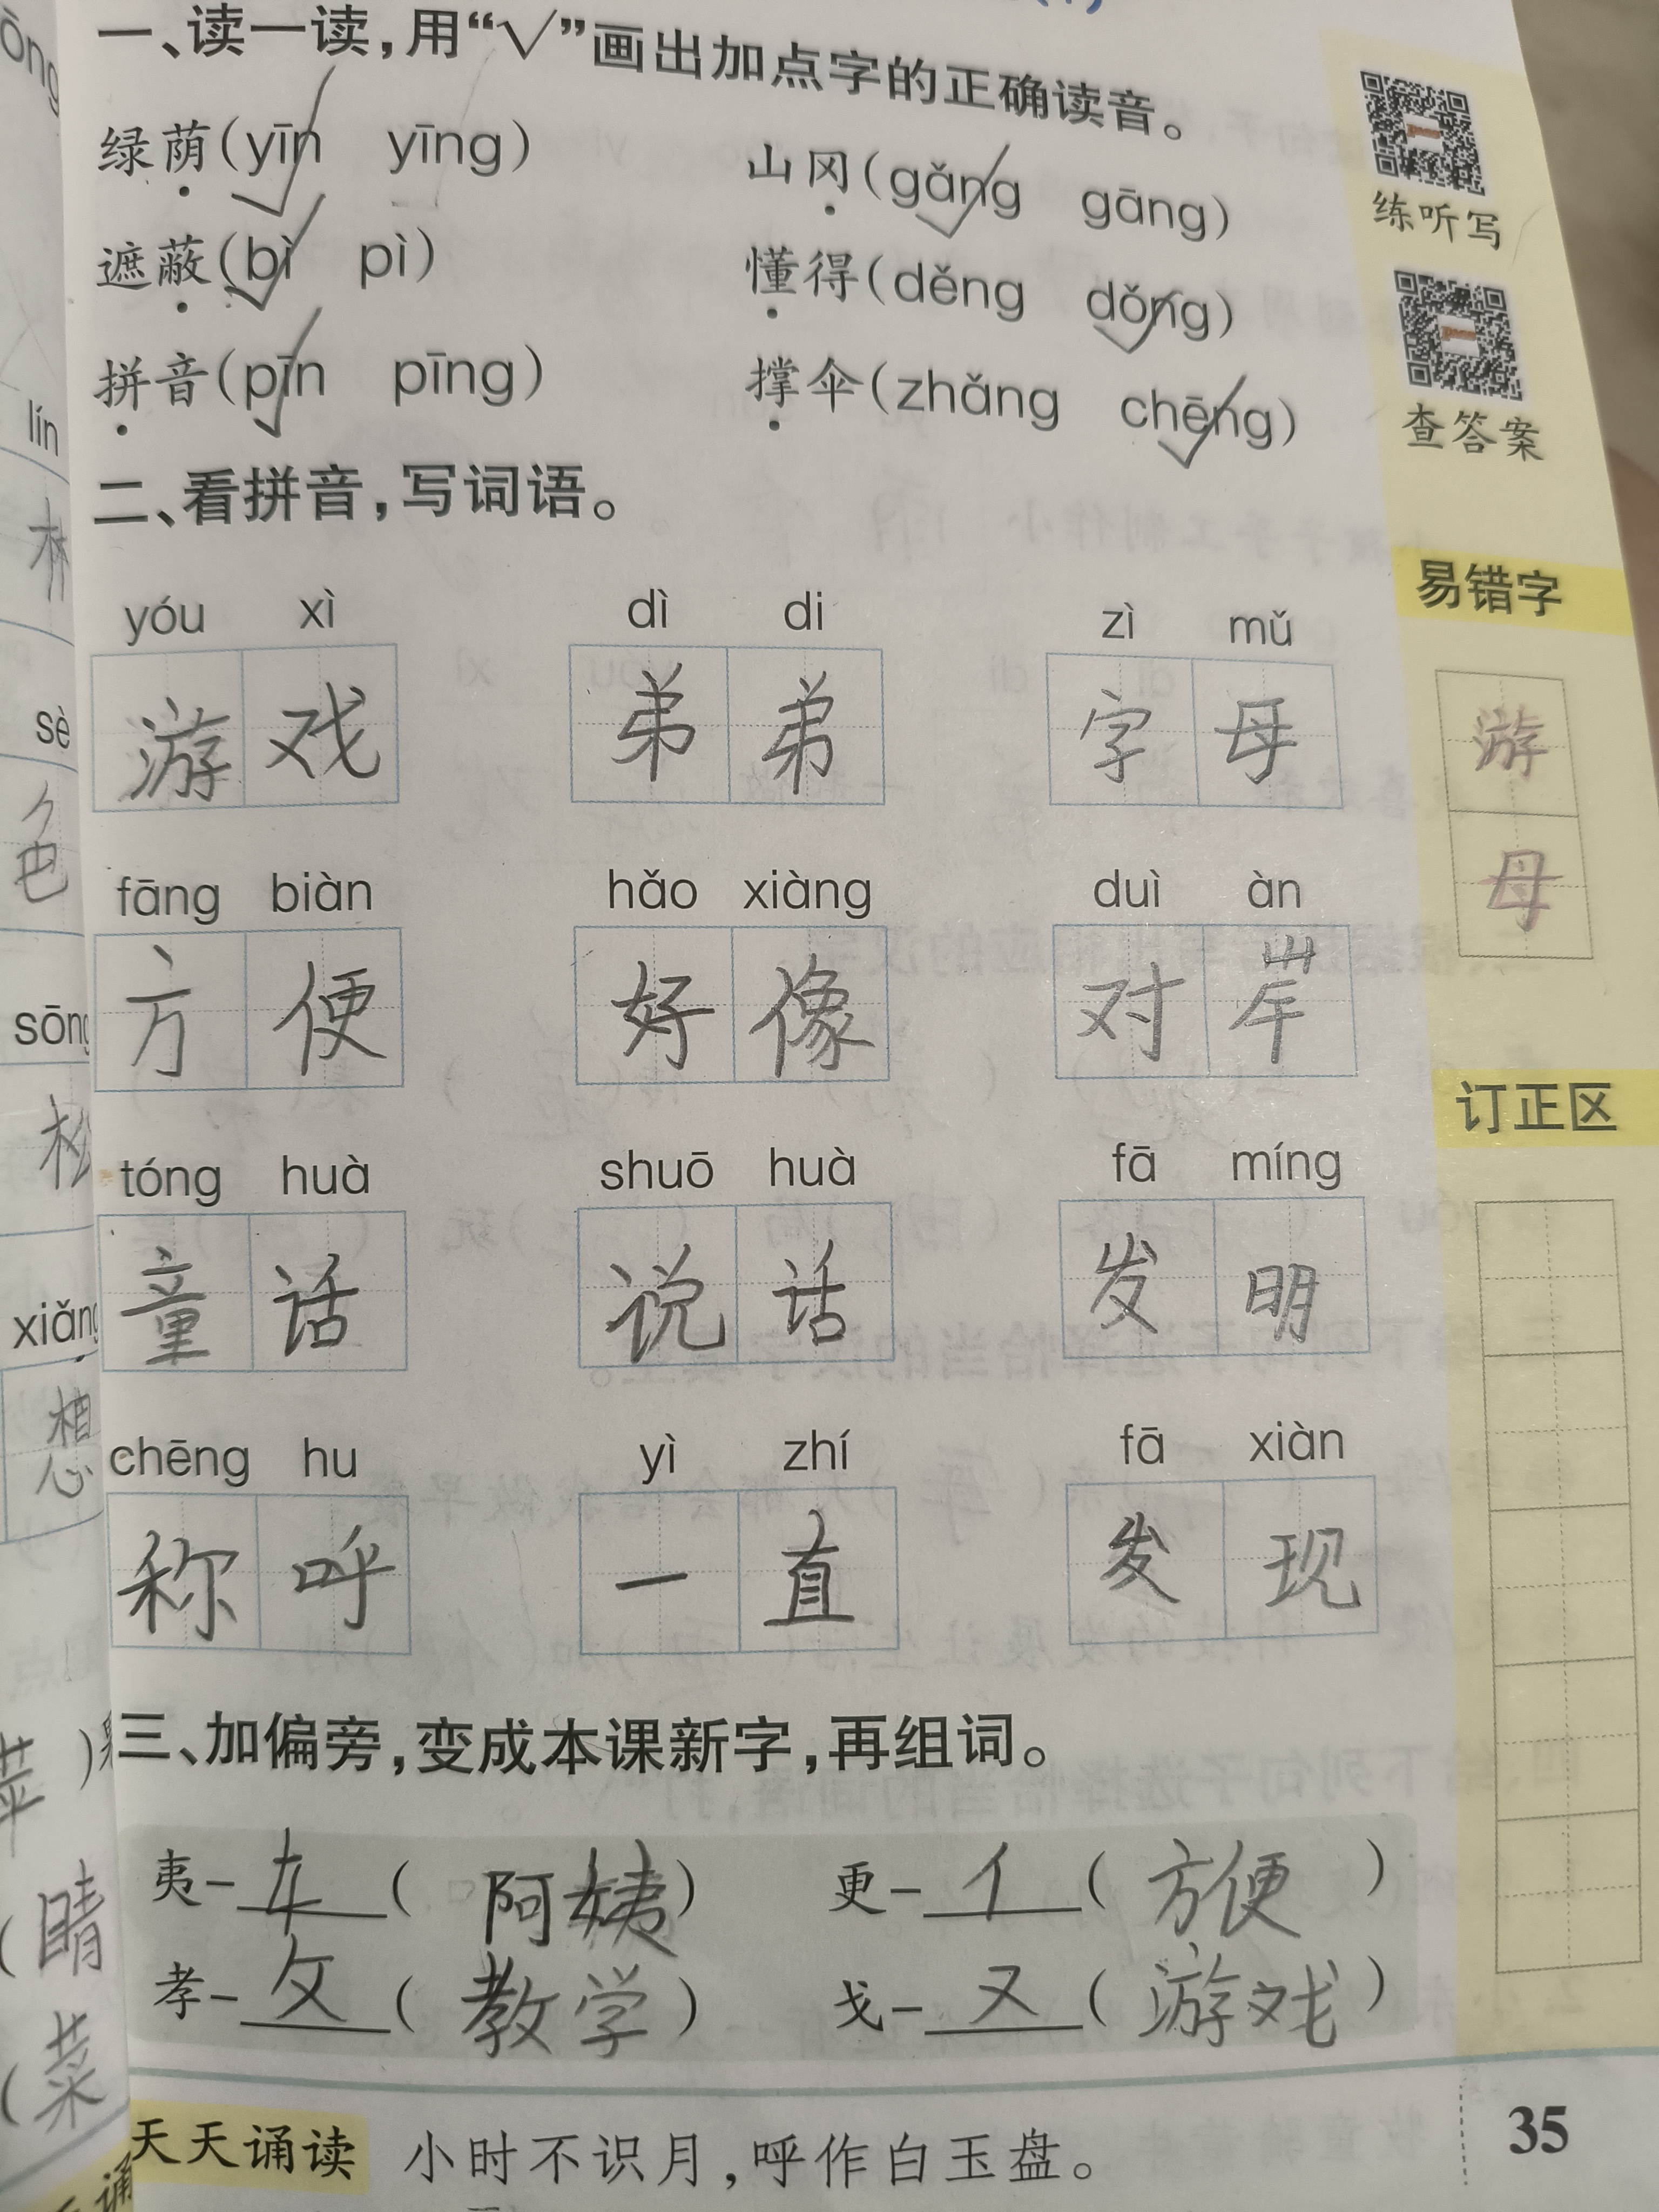 一、读一读,用“√”画出加点字的正确读音。
绿荫(yīn yīng) 山冈(gǎng gāng)
遮蔽(bì pì) 懂得(děng dǒng)
拼音(pīn pīng) 撑伞(zhǎng chēng)
练听写
查答案
二、看拼音,写词语。
yóu xì dì di zì mǔ
游戏 弟弟 字母
fāng biàn hǎo xiàng duì àn
方便 好像 对岸
tóng huà shuō huà fā míng
童话 说话 发明
chēng hu yì zhí fā xiàn
称呼 一直 发现
三、加偏旁,变成本课新字,再组词。
夷- (阿姨) 更-亻(方便)
孝-攵(教学) 戈-又(游戏)
天天诵读 小时不识月,呼作白玉盘。
35
易错字
游
母
订正区
lín
sè
色
sōng
松
xiǎng
想
菜
(睛
(菜